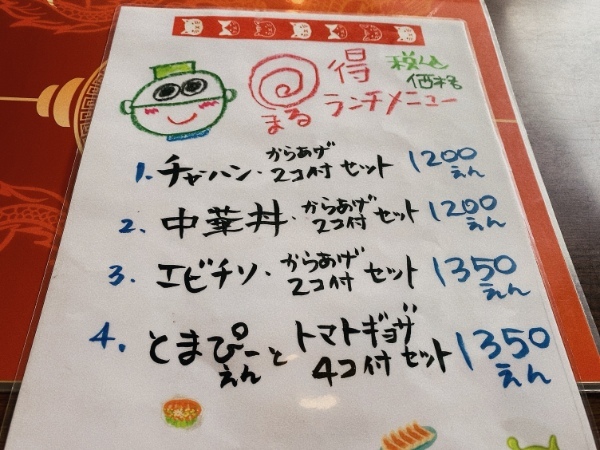 得 税込
まる 価格
ランチメニュー
1. チャーハン・からあげ2コ付セット 1200えん
2. 中華丼・からあげ2コ付セット 1200えん
3. エビチリ・からあげ2コ付セット 1350えん
4. とまぴーえんとトマトギョーザ4コ付セット 1350えん